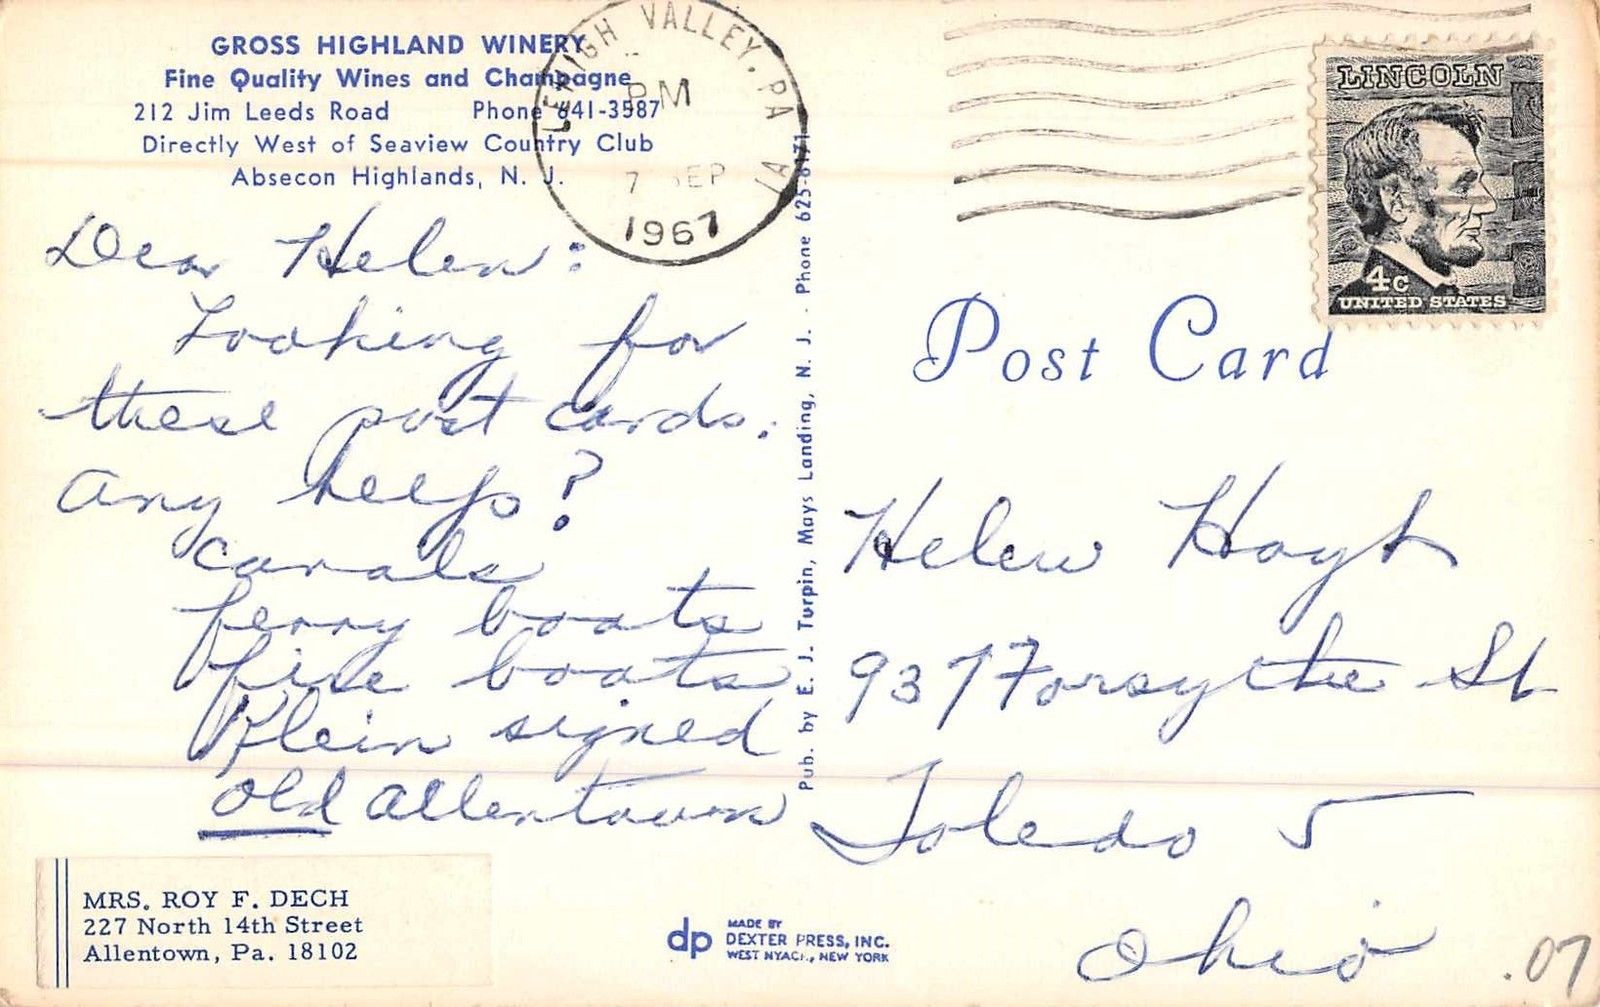 GROSS HIGHLAND WINERY
Fine Quality Wines and Champagne
212 Jim Leeds Road Phone 641-3587
Directly West of Seaview Country Club
Absecon Highlands, N. J.
LEHIGH VALLEY, PA
PM
7 SEP
1967
LINCOLN
4c
UNITED STATES
Dear Helen:
Looking for
these post cards.
Any help?
canals
ferry boats
fire boats
Klein signed
old Allentown
MRS. ROY F. DECH
227 North 14th Street
Allentown, Pa. 18102
Pub. by E. J. Turpin, Mays Landing, N. J. - Phone 625-8171
Post Card
Helen Hoyt
937 Forsythe St
Toledo 5
Ohio
dp MADE BY
DEXTER PRESS, INC.
WEST NYACK, NEW YORK
.07